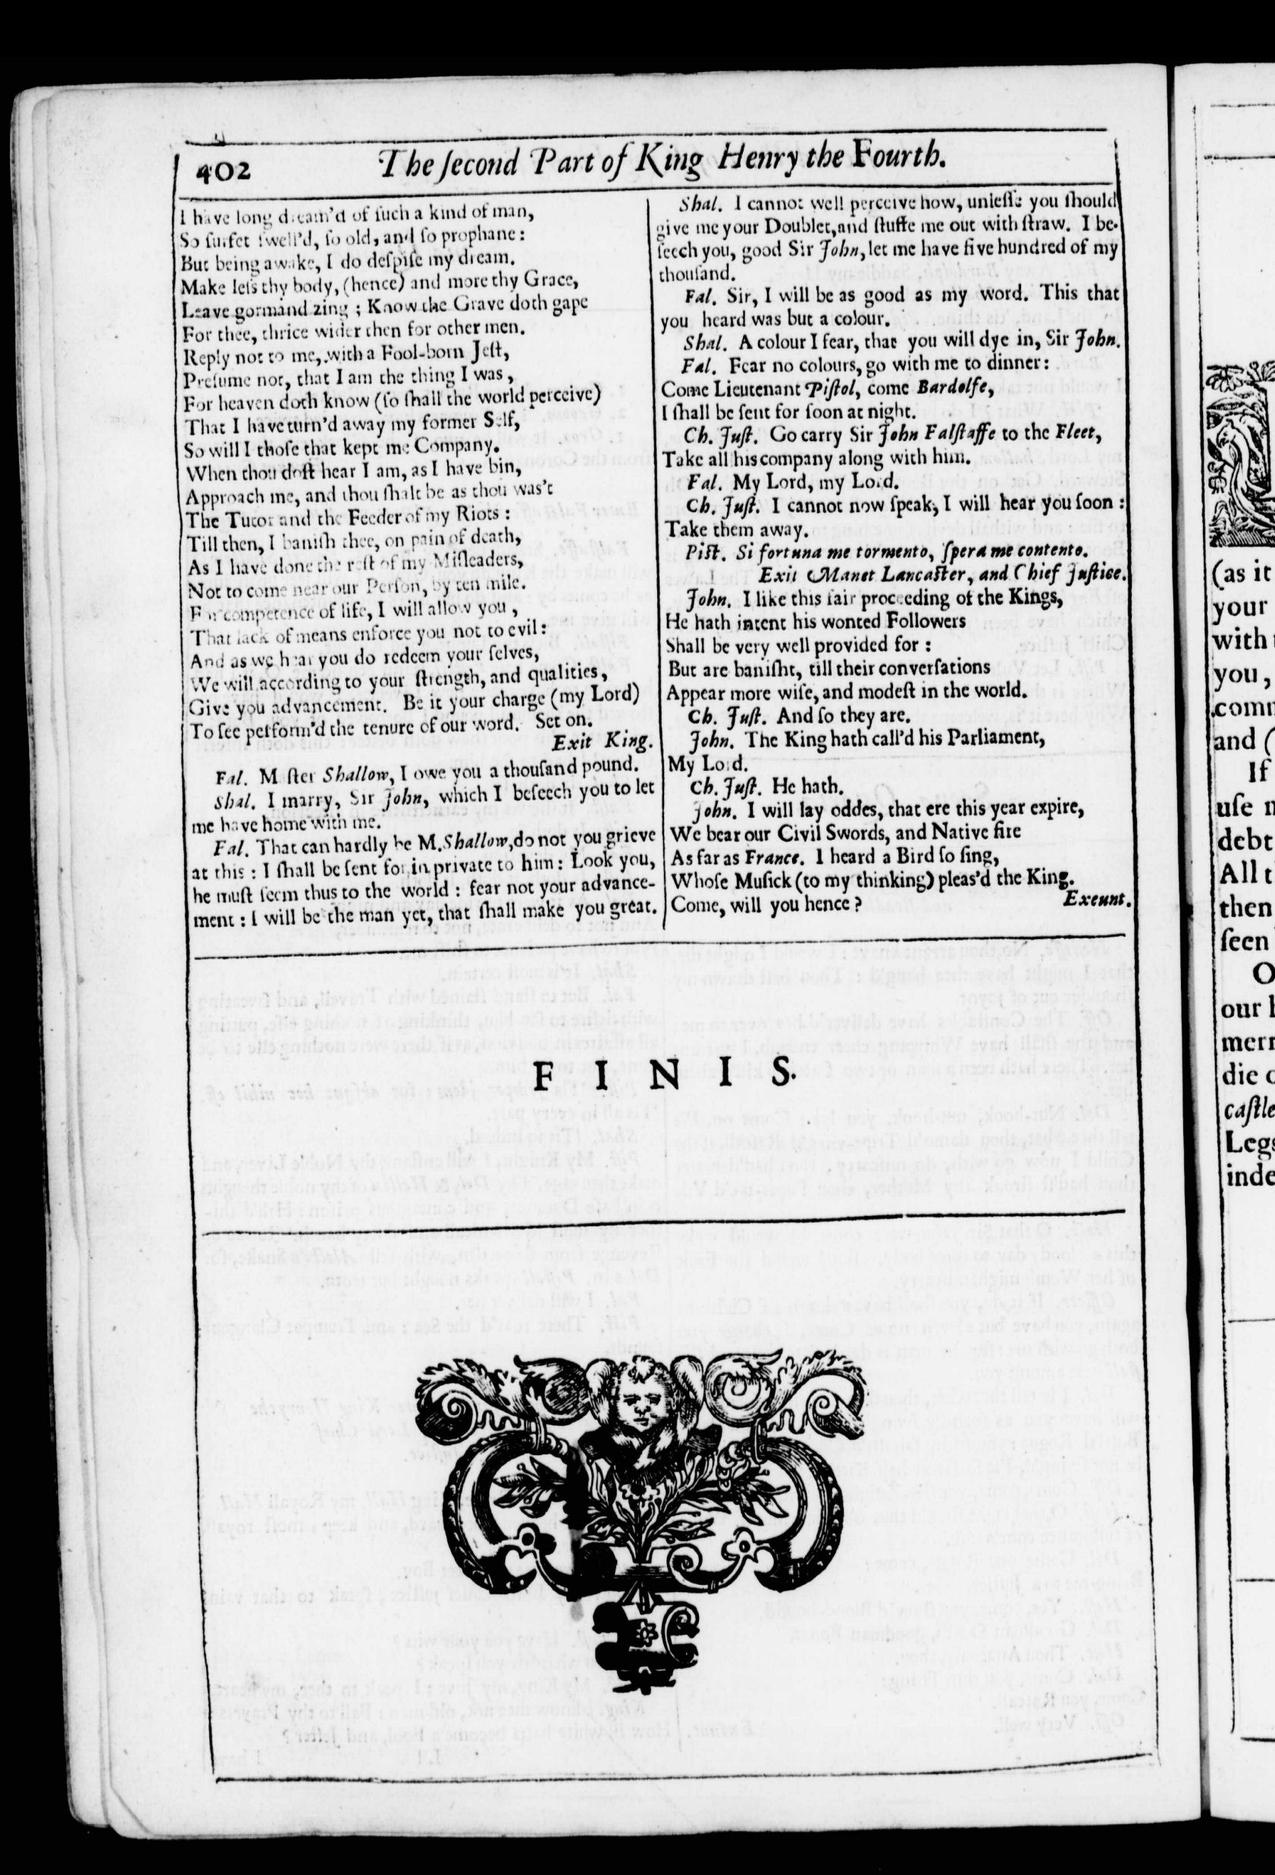 402
The ſecond Part of King Henry the Fourth.
I have long dream'd of ſuch a kind of man,
So ſurfet ſwell'd, ſo old, and ſo prophane:
But being awake, I do deſpiſe my dream.
Make leſs thy body, (hence) and more thy Grace,
Leave gormandizing; Know the Grave doth gape
For thee, thrice wider then for other men.
Reply not to me, with a Fool-born Jeſt,
Preſume not, that I am the thing I was,
For heaven doth know (ſo ſhall the world perceive)
That I have turn'd away my former Self,
So will I thoſe that kept me Company.
When thou doſt hear I am, as I have bin,
Approach me, and thou ſhalt be as thou was't
The Tutor and the Feeder of my Riots:
Till then, I baniſh thee, on pain of death,
As I have done the reſt of my Miſleaders,
Not to come near our Perſon, by ten mile.
For competence of life, I will allow you,
That lack of means enforce you not to evil:
And as we hear you do redeem your ſelves,
We will according to your ſtrength, and qualities,
Give you advancement. Be it your charge (my Lord)
To ſee perform'd the tenure of our word. Set on.
Exit King.
Fal. M ſter Shallow, I owe you a thouſand pound.
Shal. I marry, Sir John, which I beſeech you to let
me have home with me.
Fal. That can hardly be M. Shallow, do not you grieve
at this: I ſhall be ſent for in private to him: Look you,
he muſt ſeem thus to the world: fear not your advance-
ment: I will be the man yet, that ſhall make you great.
Shal. I cannot well perceive how, unleſſe you ſhould
give me your Doublet, and ſtuffe me out with ſtraw. I be-
ſeech you, good Sir John, let me have five hundred of my
thouſand.
Fal. Sir, I will be as good as my word. This that
you heard was but a colour.
Shal. A colour I fear, that you will dye in, Sir John.
Fal. Fear no colours, go with me to dinner:
Come Lieutenant Piſtol, come Bardolfe,
I ſhall be ſent for ſoon at night.
Ch. Juſt. Go carry Sir John Falſtaffe to the Fleet,
Take all his company along with him.
Fal. My Lord, my Lord.
Ch. Juſt. I cannot now ſpeak, I will hear you ſoon:
Take them away.
Piſt. Si fortuna me tormento, ſpera me contento.
Exit Manet Lancaſter, and Chief Juſtice.
John. I like this fair proceeding of the Kings,
He hath intent his wonted Followers
Shall be very well provided for:
But are baniſht, till their converſations
Appear more wiſe, and modeſt in the world.
Ch. Juſt. And ſo they are.
John. The King hath call'd his Parliament,
My Lord.
Ch. Juſt. He hath.
John. I will lay oddes, that ere this year expire,
We bear our Civil Swords, and Native fire
As far as France. I heard a Bird ſo ſing,
Whoſe Muſick (to my thinking) pleas'd the King.
Come, will you hence? Exeunt.
FINIS.
(as it
your
with
you,
comm
and (
If
uſe
debt
All t
then
ſeen
O
our
merr
die
caſtle
Legs
inde